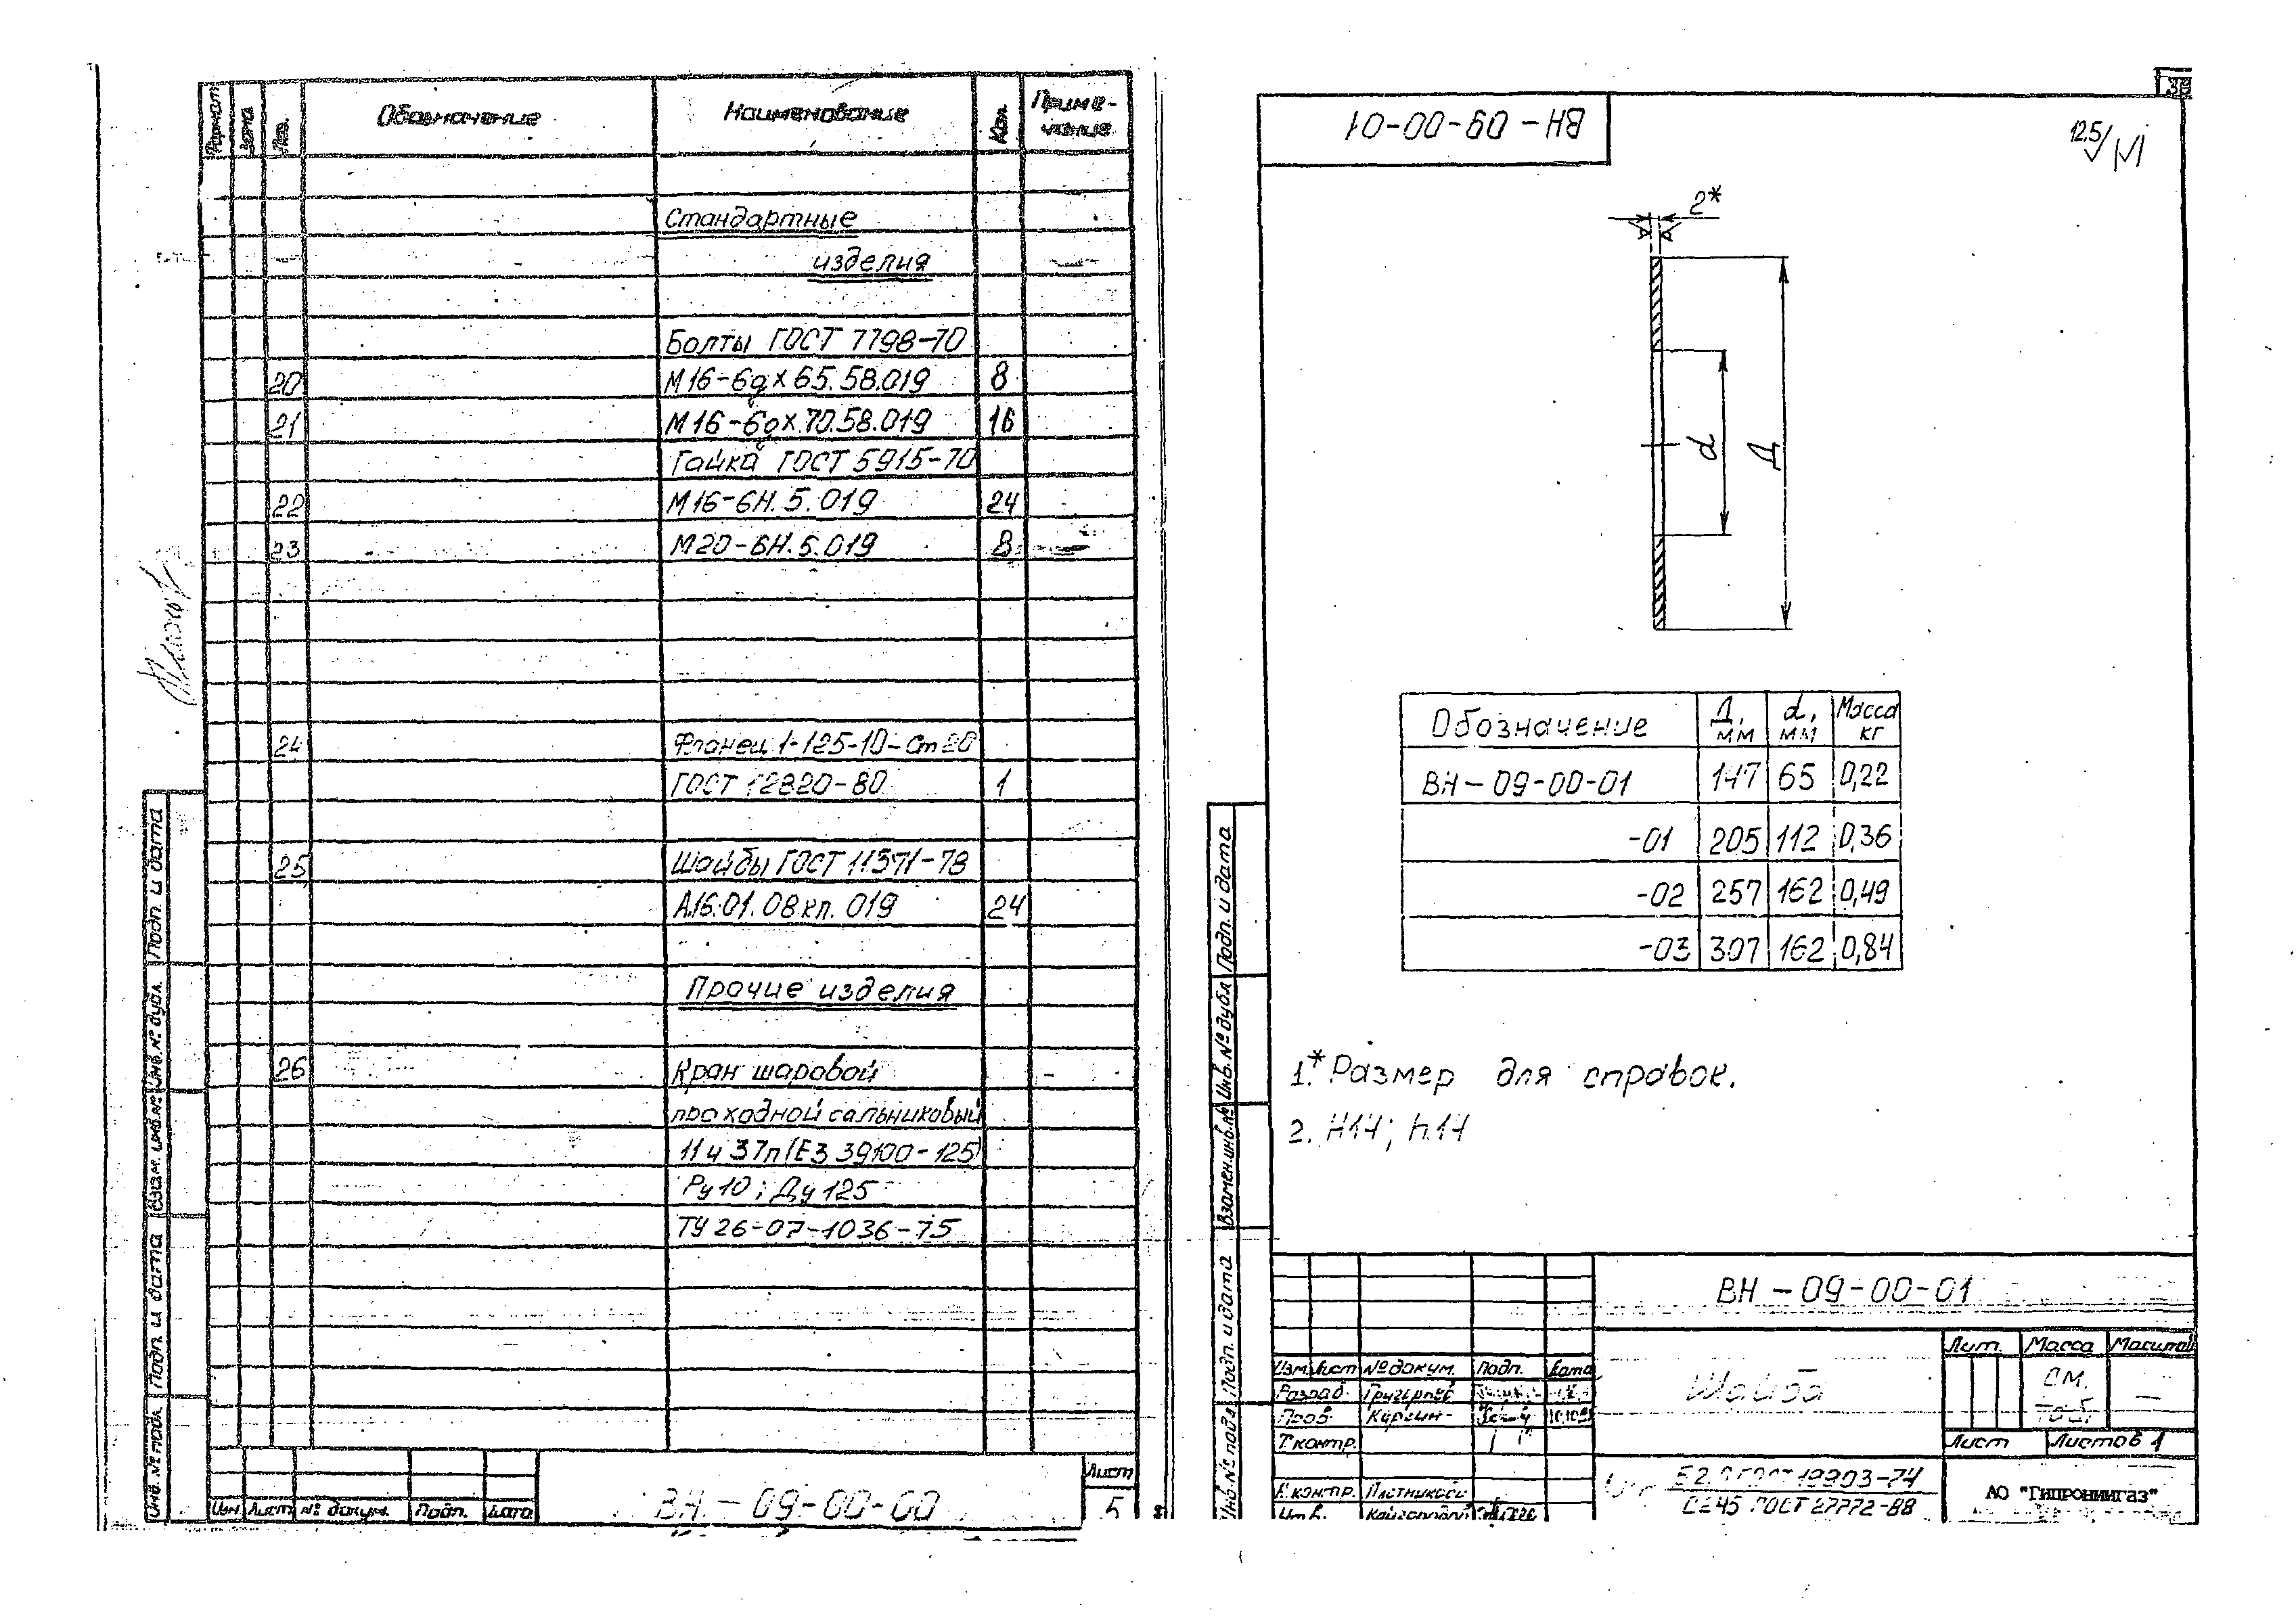 Формат
Зона
Поз.
Обозначение
Наименование
Кол.
Приме-
чание
Стандартные
изделия
Болты ГОСТ 7798-70
20 М16-6gх65.58.019 8
21 М16-6gх70.58.019 16
Гайка ГОСТ 5915-70
22 М16-6Н.5.019 24
23 М20-6Н.5.019 8
24 Фланец 1-125-10-Ст20
ГОСТ 12820-80 1
25 Шайбы ГОСТ 11371-78
А.16.01.08кп.019 24
Прочие изделия
26 Кран шаровой
проходной сальниковый
11ч37п(ЕЗ 39100-125)
Ру10; Ду125
ТУ 26-07-1036-75
Подп. и дата
Инв. № дубл.
Взам. инв. №
Подп. и дата
Инв. № подл.
Изм. Лист № докум. Подп. Дата
ВН-09-00-00
Лист
5
ВН-09-00-01
12,5
2*
d
Д
Обозначение Д, мм d, мм Масса кг
ВН-09-00-01 147 65 0,22
-01 205 112 0,36
-02 257 162 0,49
-03 307 162 0,84
1.* Размер для справок.
2. Н14; h14
Подп. и дата
Инв. № дубл.
Взамен.инв.№
Подп. и дата
Инв № подл
ВН-09-00-01
Изм. Лист № докум. Подп. Дата
Разраб.
Пров.
Т контр.
Н контр.
Утв.
Шайба
Лит. Масса Масштаб
См.
табл
—
Лист Листов 1
ГОСТ 19903-74
С245 ГОСТ 27772-88
АО "Гипрониигаз"